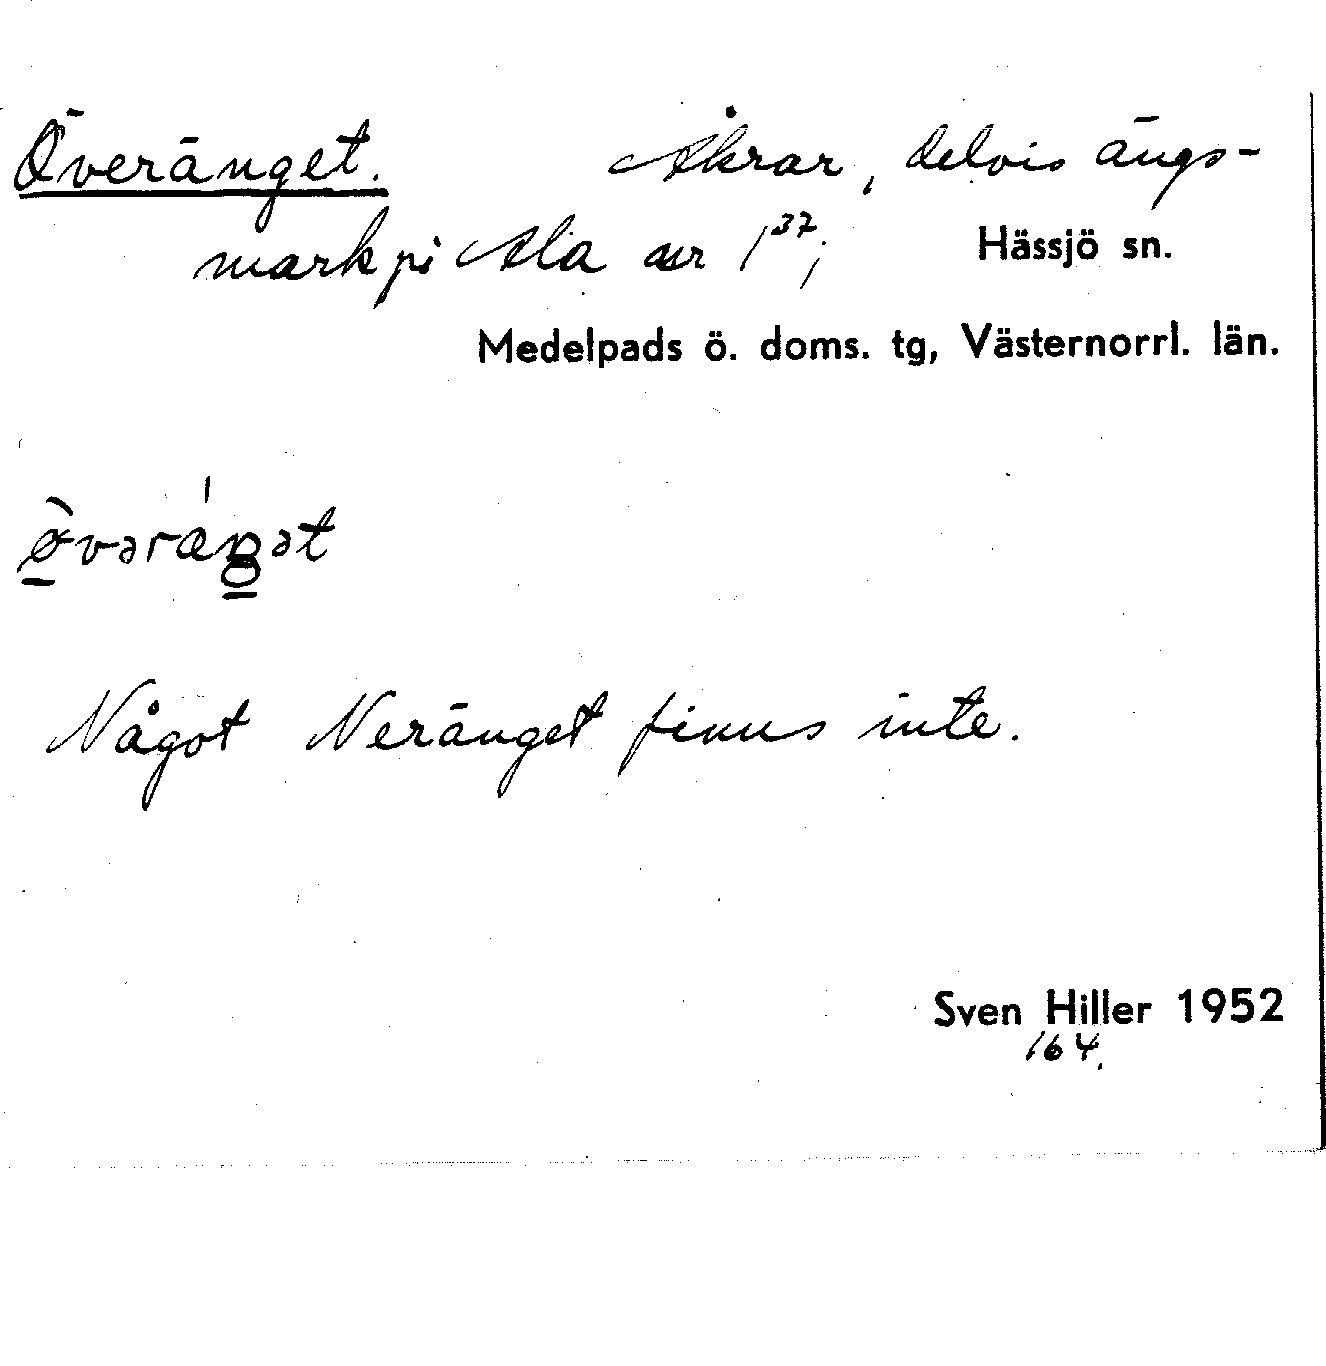 Överänget. Åkrar, delvis ängs-
mark på Ala nr 1³⁷;
Hässjö sn.
Medelpads ö. doms. tg, Västernorrl. län.
Något Neränget finns inte.
Sven Hiller 1952
164.